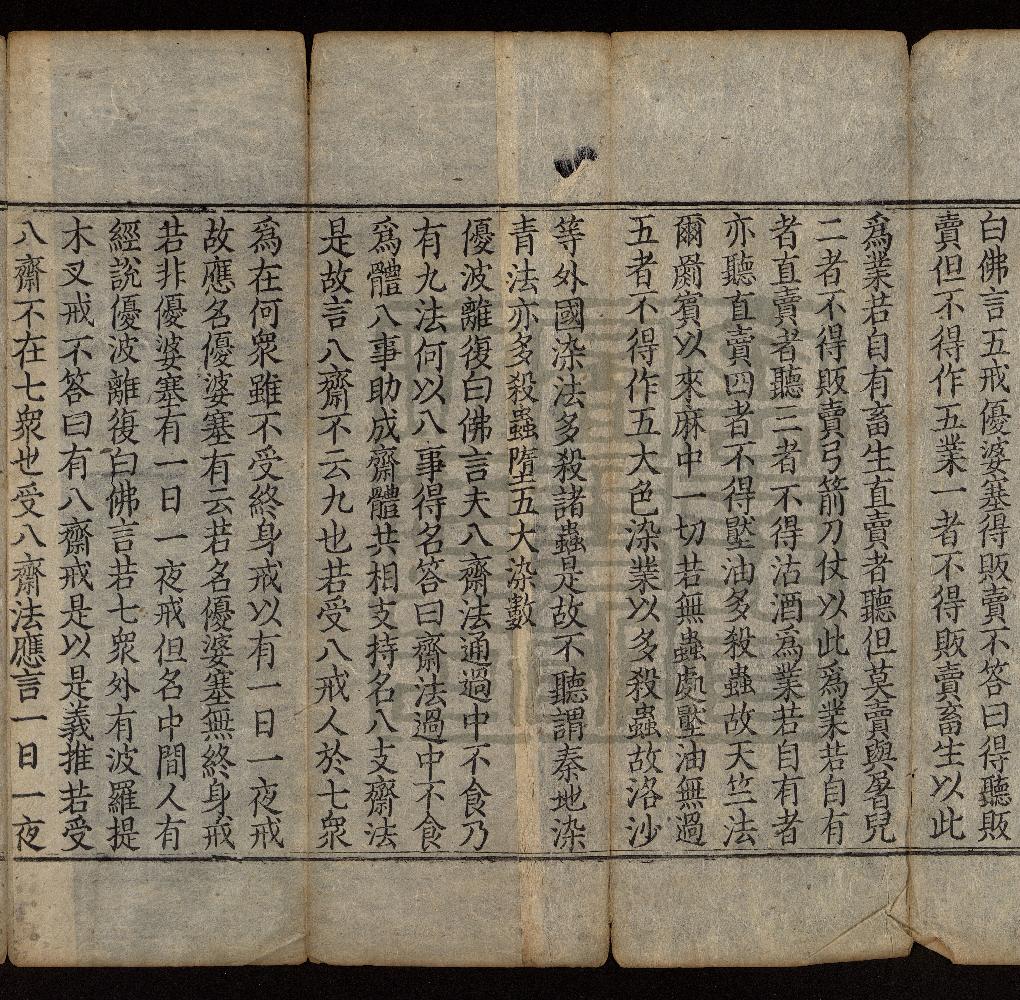 白佛言五戒優婆塞得販賣不答曰得聽販
賣但不得作五業一者不得販賣畜生以此
爲業若自有畜生直賣者聽但莫賣與屠兒
二者不得販賣弓箭刀仗以此爲業若自有
者直賣者聽三者不得沽酒爲業若自有者
亦聽直賣四者不得壓油多殺蟲故天竺法
爾罽賓以來麻中一切若無蟲處壓油無過
五者不得作五大色染業以多殺蟲故洛沙
等外國染法多殺諸蟲是故不聽謂秦地染
青法亦多殺蟲墮五大染數
優波離復白佛言夫八齋法通過中不食乃
有九法何以八事得名答曰齋法過中不食
爲體八事助成齋體共相支持名八支齋法
是故言八齋不云九也若受八戒人於七衆
爲在何衆雖不受終身戒以有一日一夜戒
故應名優婆塞有云若名優婆塞無終身戒
若非優婆塞有一日一夜戒但名中間人有
經說優波離復白佛言若七衆外有波羅提
木叉戒不答曰有八齋戒是以是義推若受
八齋不在七衆也受八齋法應言一日一夜